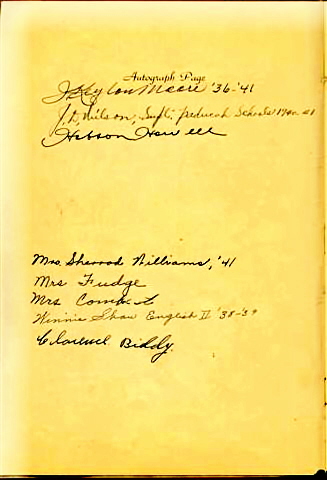 Autograph Page
J. Clyton Moore '36-'41
J. D. Wilson, Supt. Paducah Schools 1940-41
Hobson Howell
Mrs. Sherrod Williams, '41
Mrs Fudge
Mrs
Winnie Shaw English II '38-'39
Clarence Biddy.